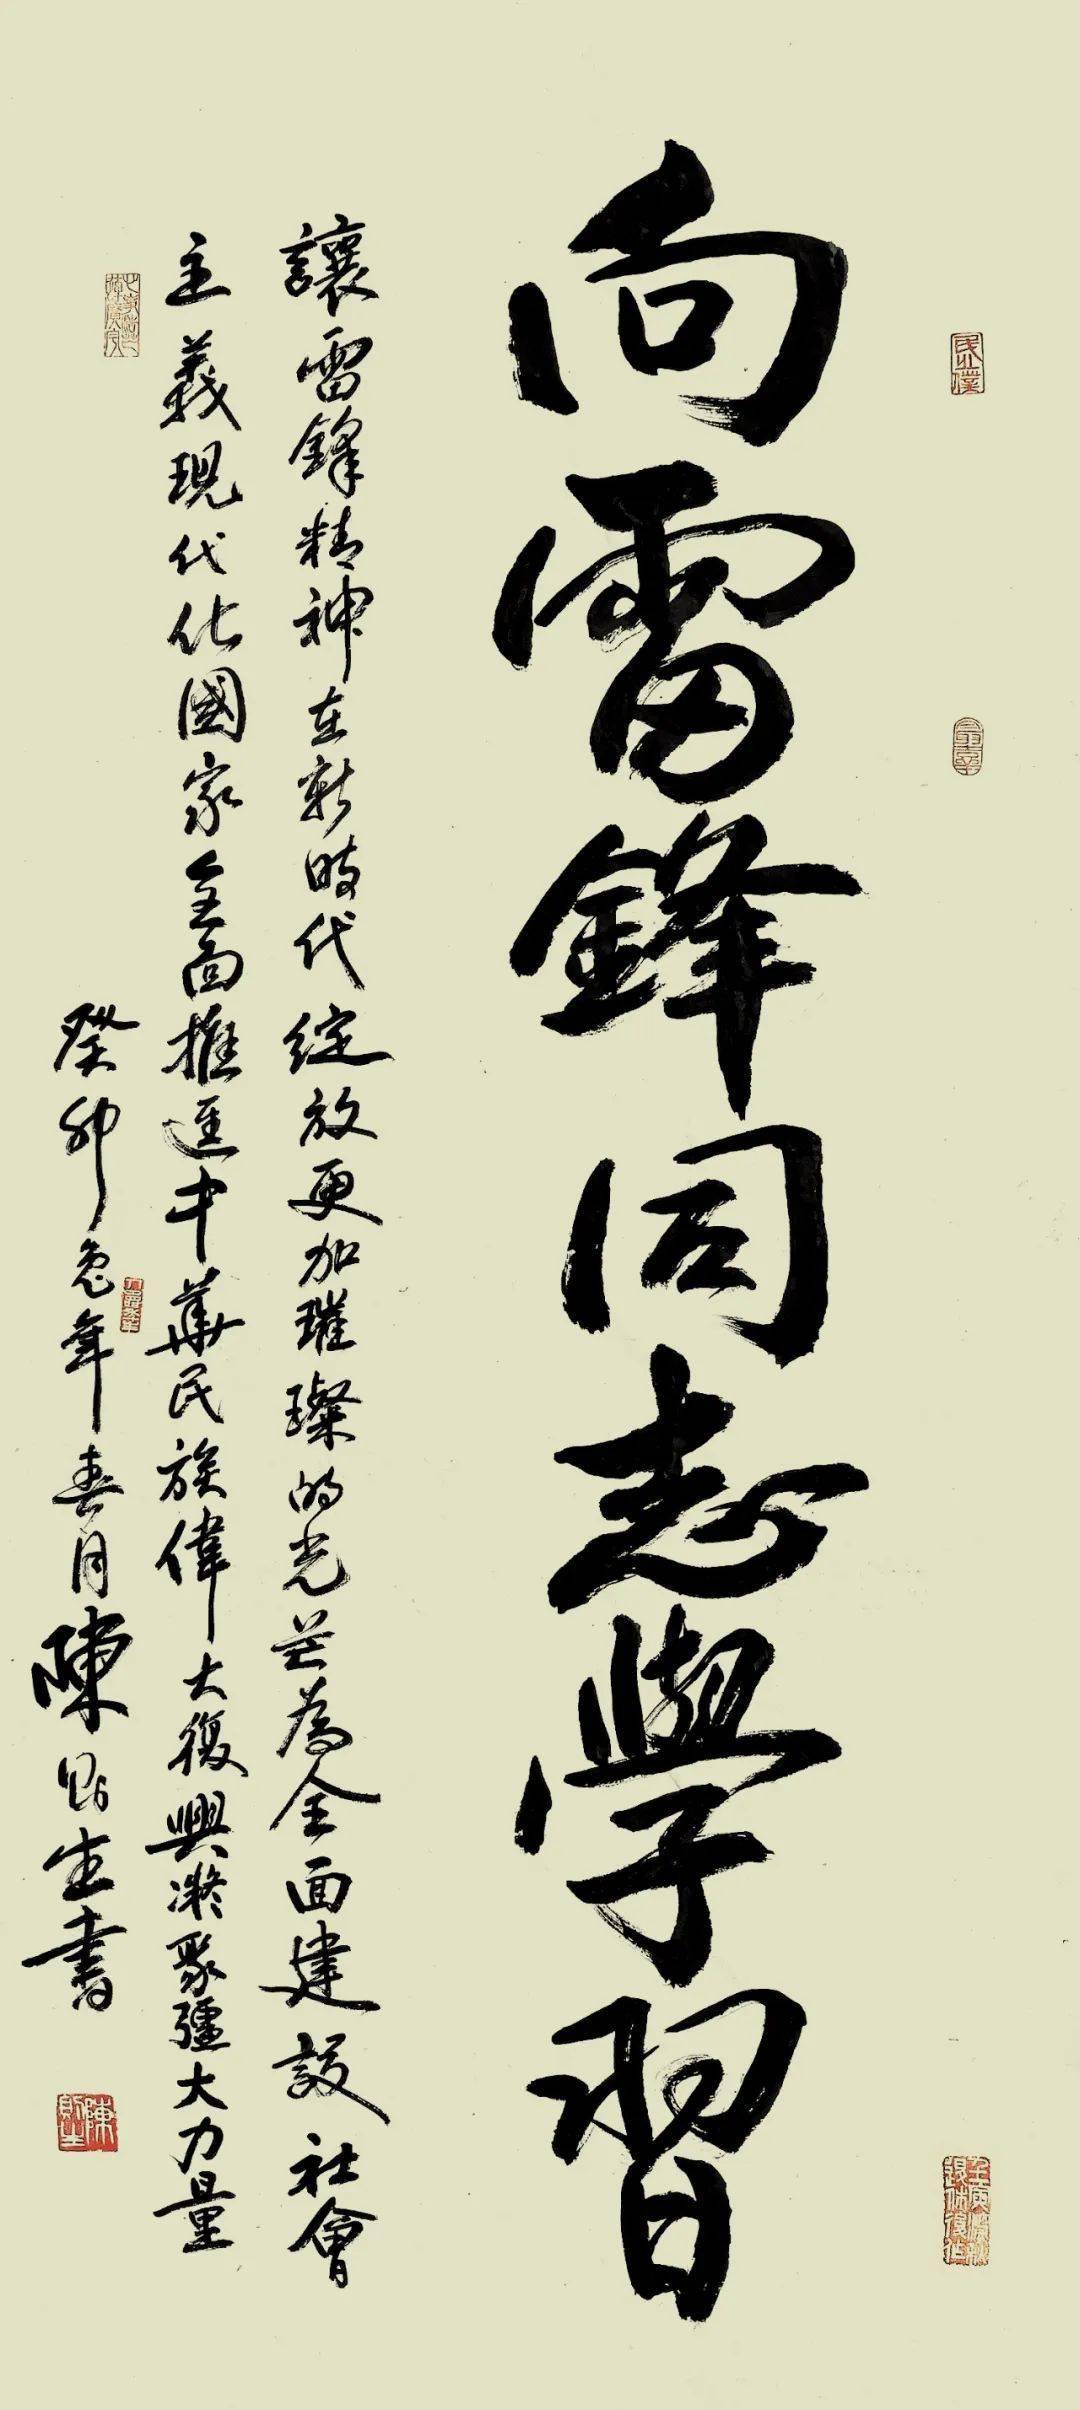 向雷鋒同志學習
讓雷鋒精神在新時代綻放更加璀璨的光芒為全面建設社會
主義現代化國家全面推進中華民族偉大復興凝聚疆大力量
癸卯兔年春月陳貽生書